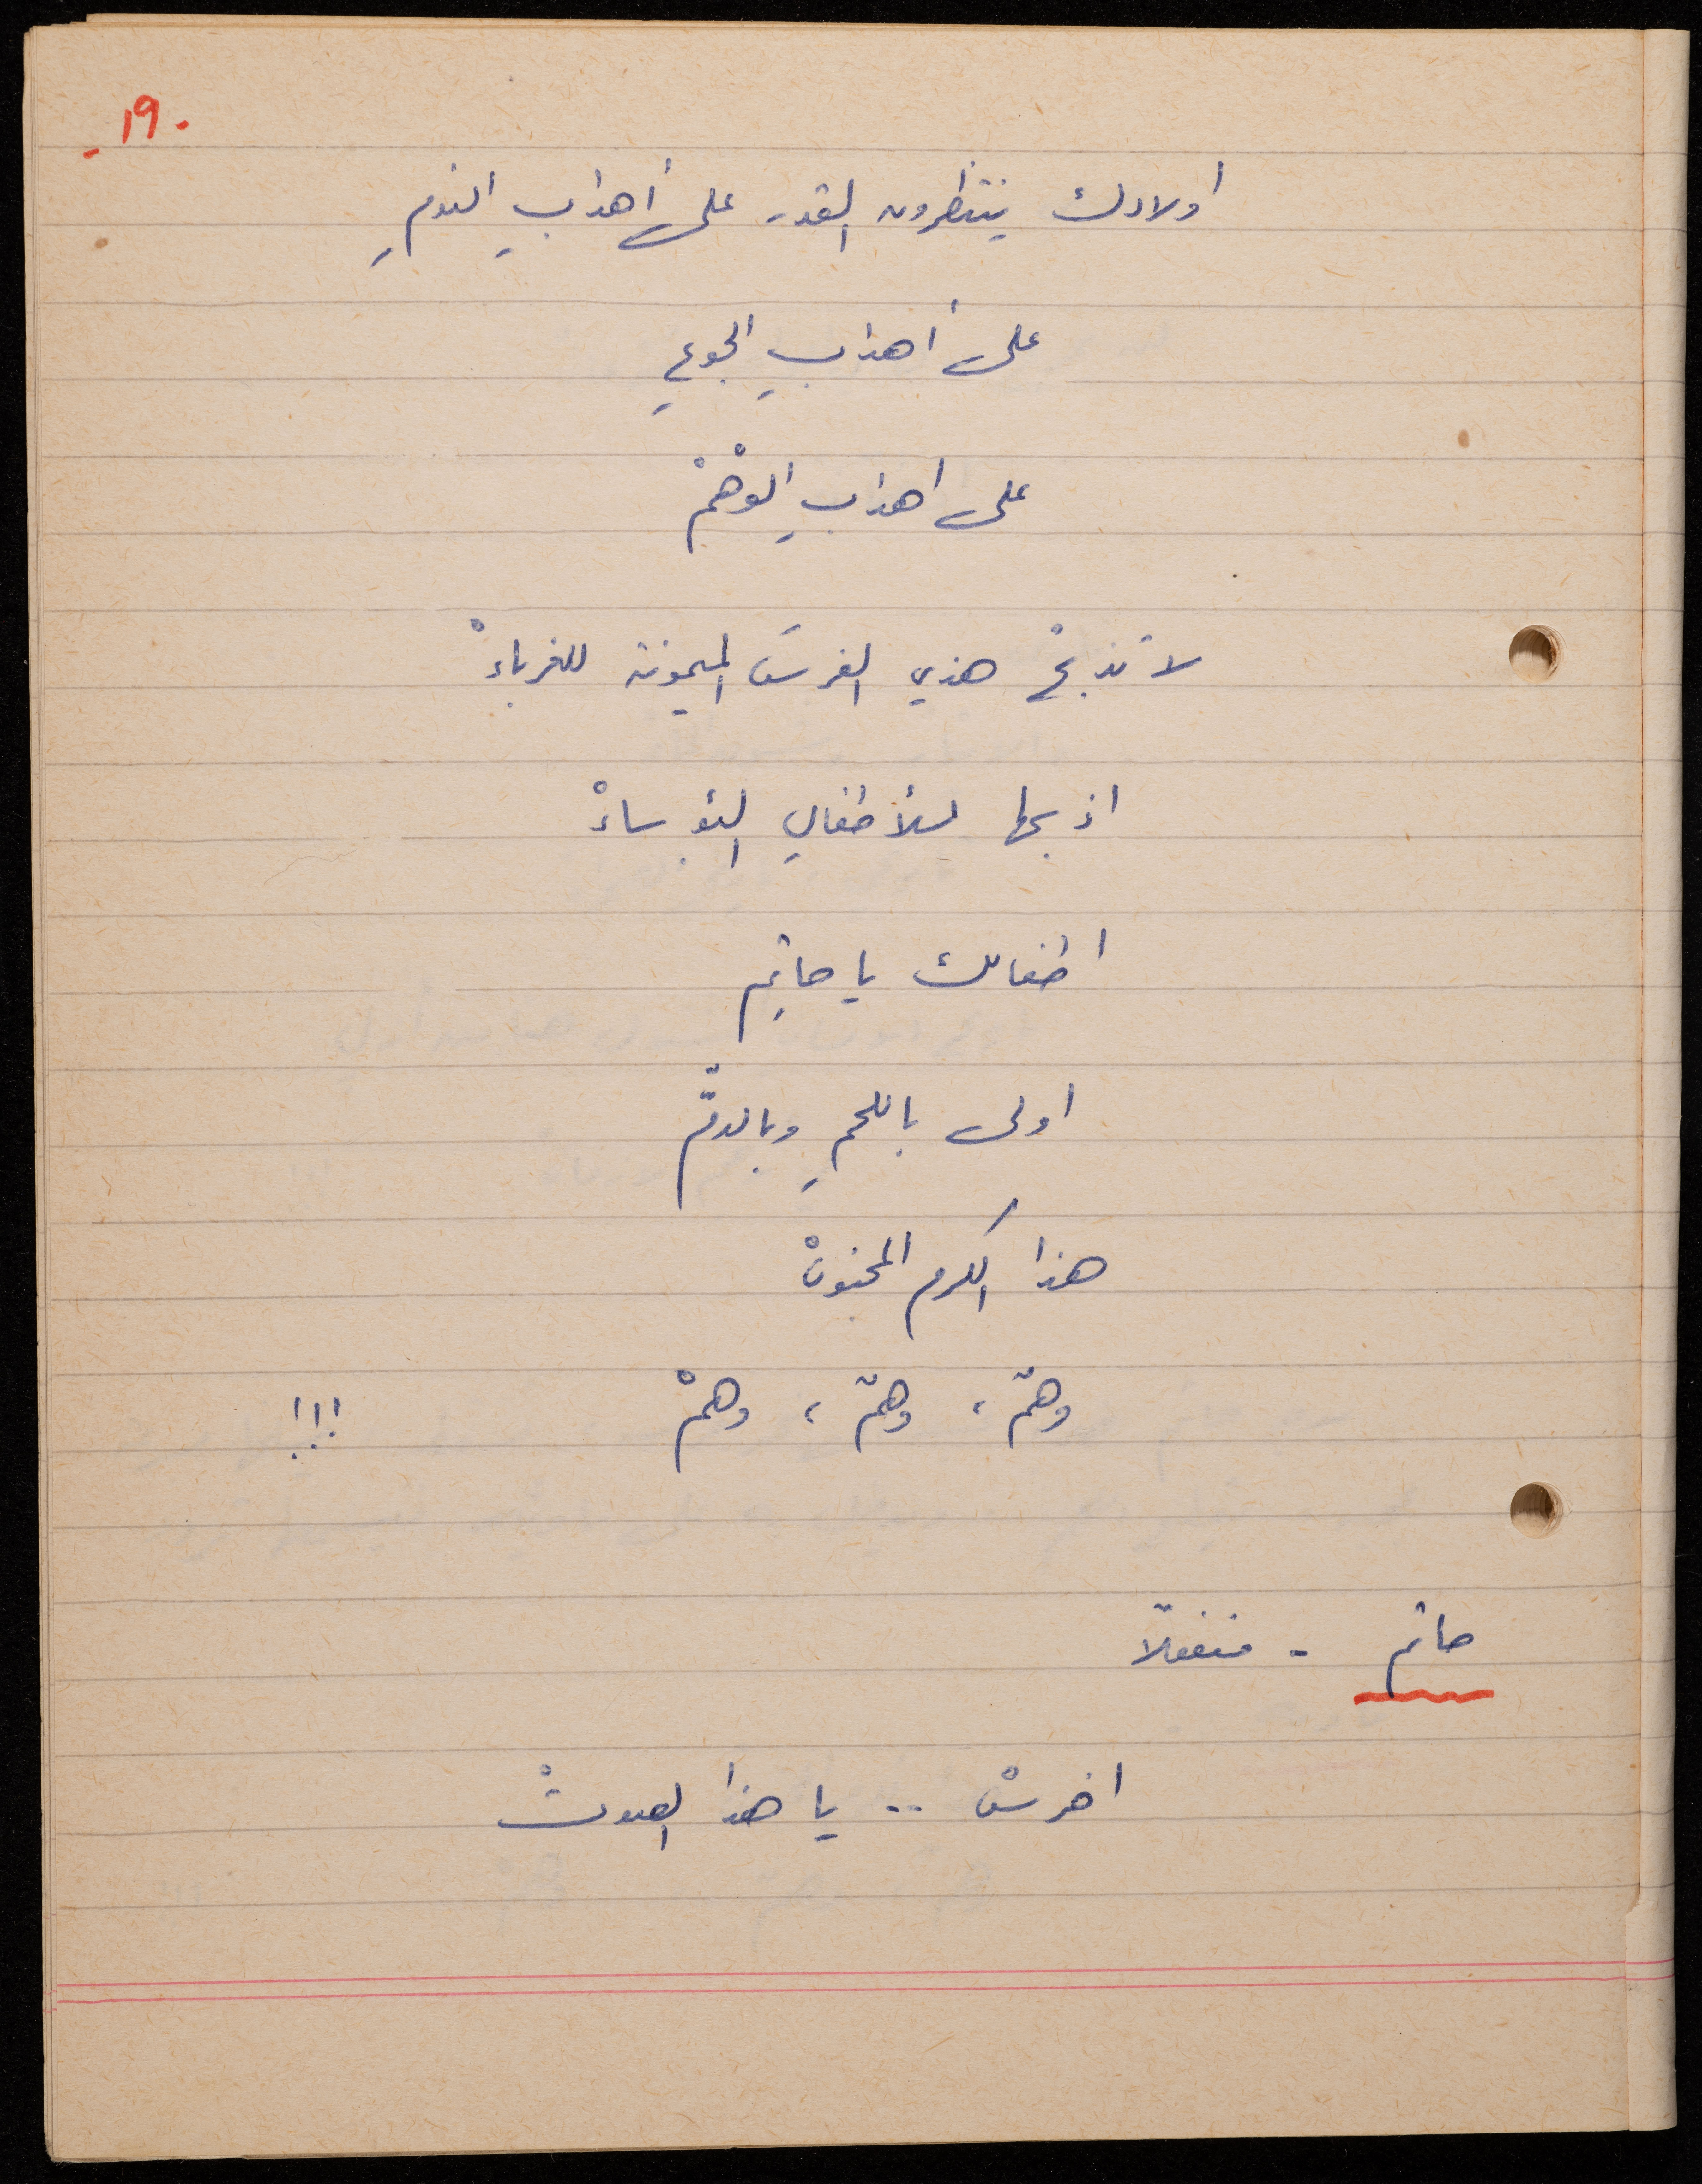 ١٩٠ -
اولادك ينتظرون القدر على أهدابِ النومِ
على أهدابِ الجوعِ
على اهدابِ الوْهمْ
لا تذبحْ هذي الفرسَ الميمونة للغرباءْ
اذبحها للأطفالِ البؤساءْ
اطفالك يا حاتِم
اولى باللحمِ وبالدمّْ
هذا الكرم المجنونْ
وهمٌ ، وهمٌ ، وهمْ !!!
حاتم - منفعلاً
اخرسْ .. يا هذا الصوتْ